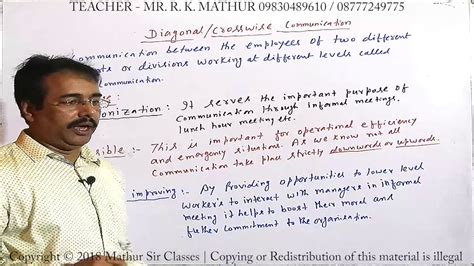 TEACHER - MR. R. K. MATHUR 09830489610 / 08777249775
Diagonal/Crosswise Communication
Communication between the employees of two different
or divisions working at different levels called
communication.
:-
onization:- It serves the important purpose of
communication through informal meetings.
lunch hour meeting etc.
sible:- This is important for operational efficiency
and emergency situations. As we know not all
Communication take place strictly downwards or upwards.
improving:- By Providing opportunities to lower level
Worker's to interact with managers in informal
meeting it helps to boost their moral and
further commitment to the organisation.
Copyright © 2018 Mathur Sir Classes | Copying or Redistribution of this material is illegal